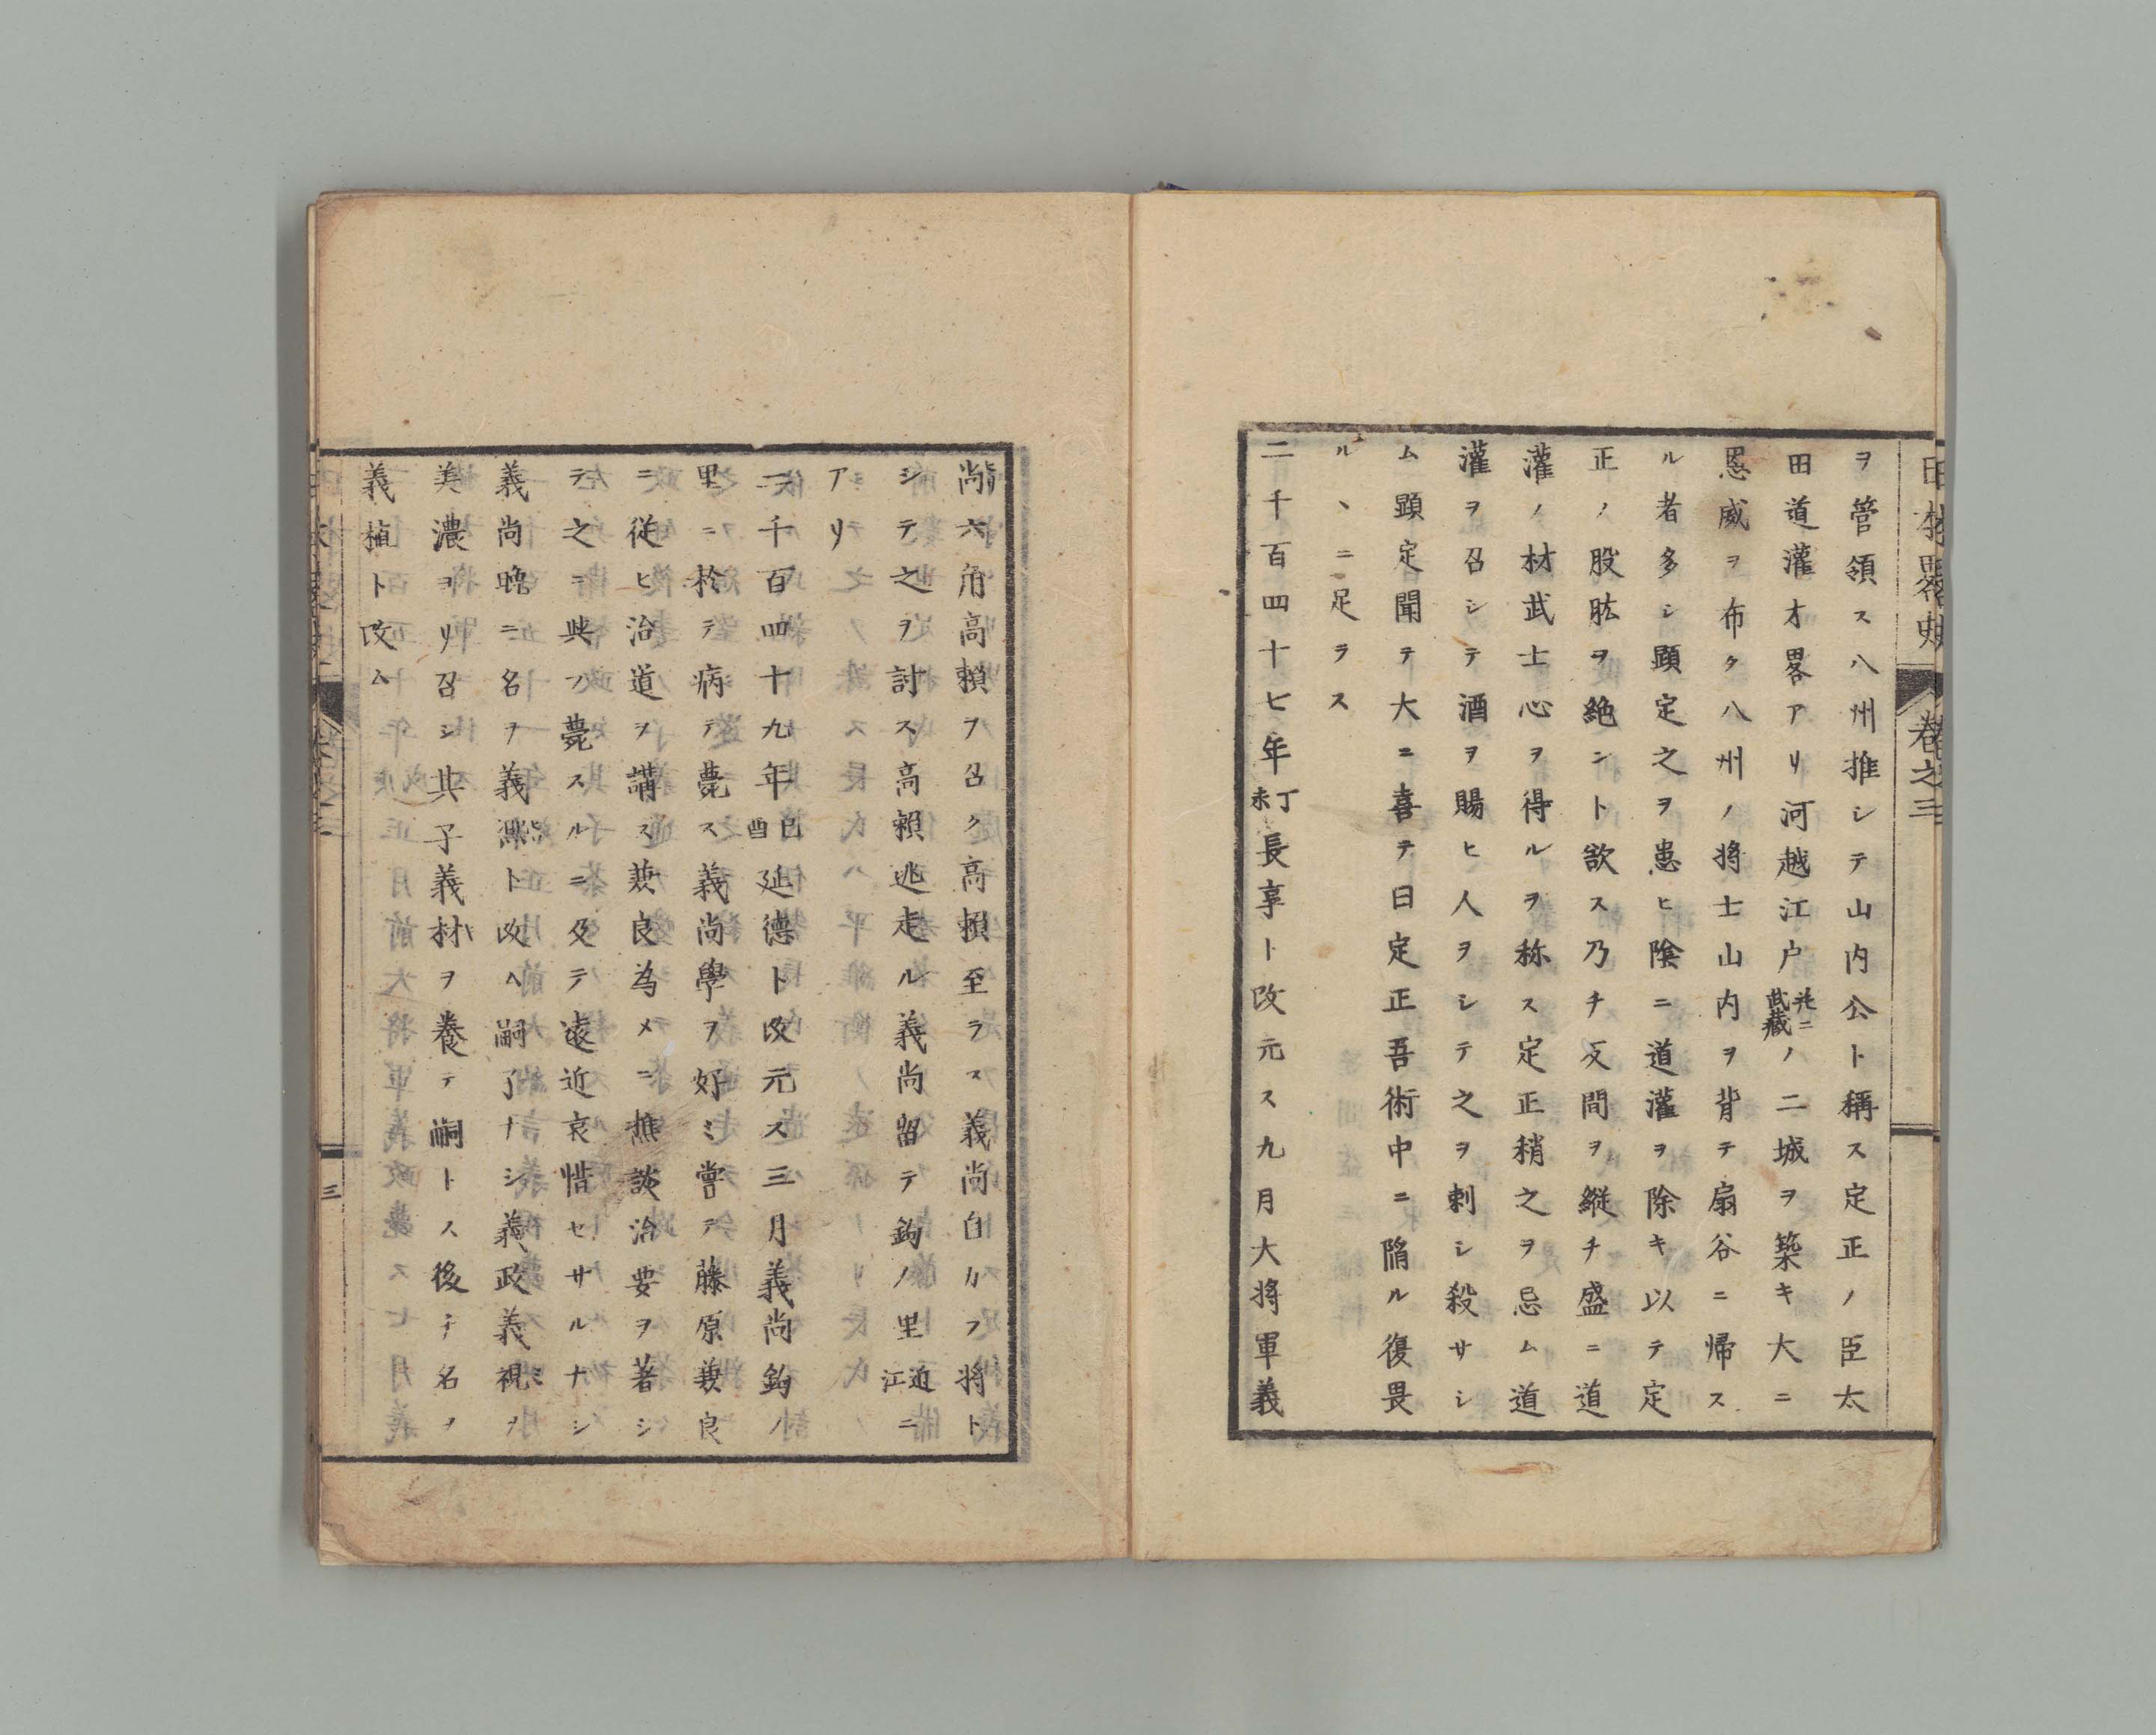 ヲ管領ス八州推シテ山内公ト稱ス定正ノ臣太
田道灌才畧アリ河越江户共ニ武藏ノ二城ヲ築キ大ニ
恩威ヲ布ク八州ノ将士山内ヲ背テ扇谷ニ帰ス
ル者多シ顕定之ヲ患ヒ陰ニ道灌ヲ除キ以テ定
正ノ股肱ヲ絶ント欲ス乃チ反間ヲ縦チ盛ニ道
灌ノ材武士心ヲ得ルヲ称ス定正稍之ヲ忌ム道
灌ヲ召シテ酒ヲ賜ヒ人ヲシテ之ヲ刺シ殺サシ
ム顕定聞テ大ニ喜テ曰定正吾術中ニ陷ル復畏
ルヽニ足ラス
二千百四十七年丁未長享ト改元ス九月大将軍義
尚六角高賴ヲ召ク高賴至ラス義尚自カラ将ト
シテ之ヲ討ス高賴逃走ル義尚留テ鈎ノ里近江ニ
アリ
二千百四十九年己酉延德ト改元ス三月義尚鈎ノ
里ニ於テ病テ薨ス義尚學ヲ好ミ嘗テ藤原兼良
ニ従ヒ治道ヲ講ス兼良為メニ樵談治要ヲ著シ
テ之ニ與フ薨スルニ及テ遠近哀惜セサルナシ
義尚晚ニ名ヲ義凞ト改ヘ嗣子ナシ義政義視ヲ
美濃ヨリ召シ其子義材ヲ養テ嗣トス後チ名ヲ
義植ト改ム
日本畧史 卷之三
三